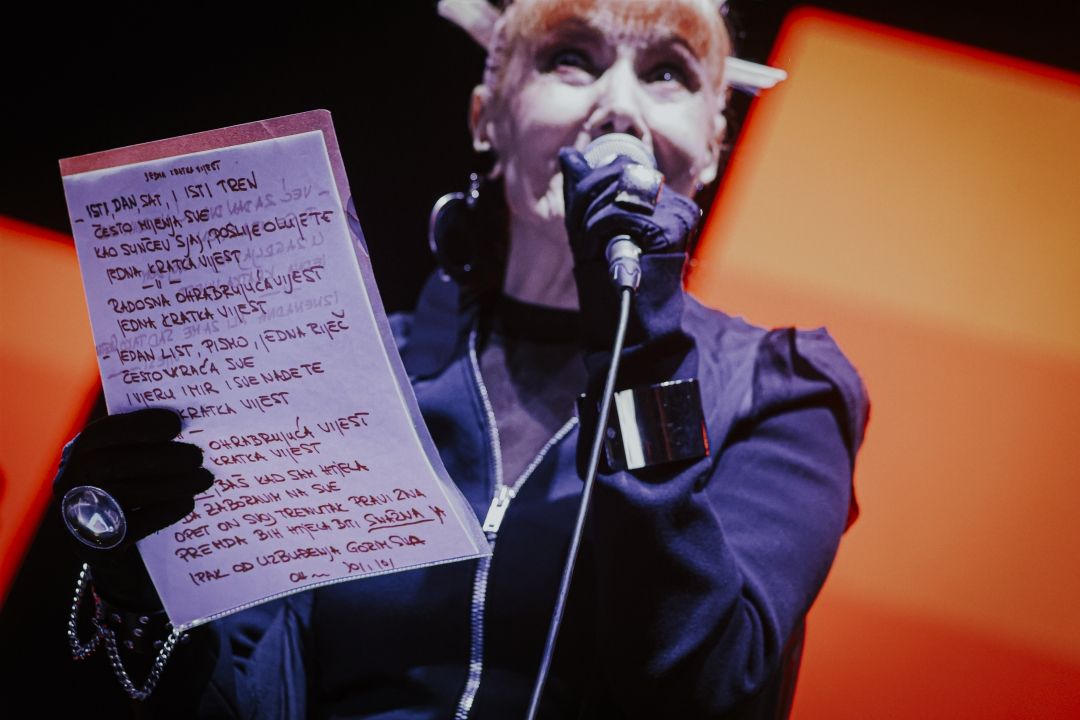 JEDNA KRATKA VIJEST
- ISTI DAN, SAT, I ISTI TREN
ČESTO MIJENJA SVE
KAO SUNČEV SJAJ POSLIJE OLUJE TE
JEDNA KRATKA VIJEST
RADOSNA OHRABRUJUĆA VIJEST
JEDNA KRATKA VIJEST
- JEDAN LIST, PISMO, JEDNA RIJEČ
ČESTO VRAĆA SVE
I VJERU I MIR I SVE NADE TE
KRATKA VIJEST
- OHRABRUJUĆA VIJEST
KRATKA VIJEST
BAŠ KAD SAM HTJELA
DA ZABORAVIM NA SVE
OPET ON SVOJ TRENUTAK PRAVI ZNA
PREMDA BIH HTJELA BITI SNAŽNA JA
IPAK OD UZBUĐENJA GORIM SVA